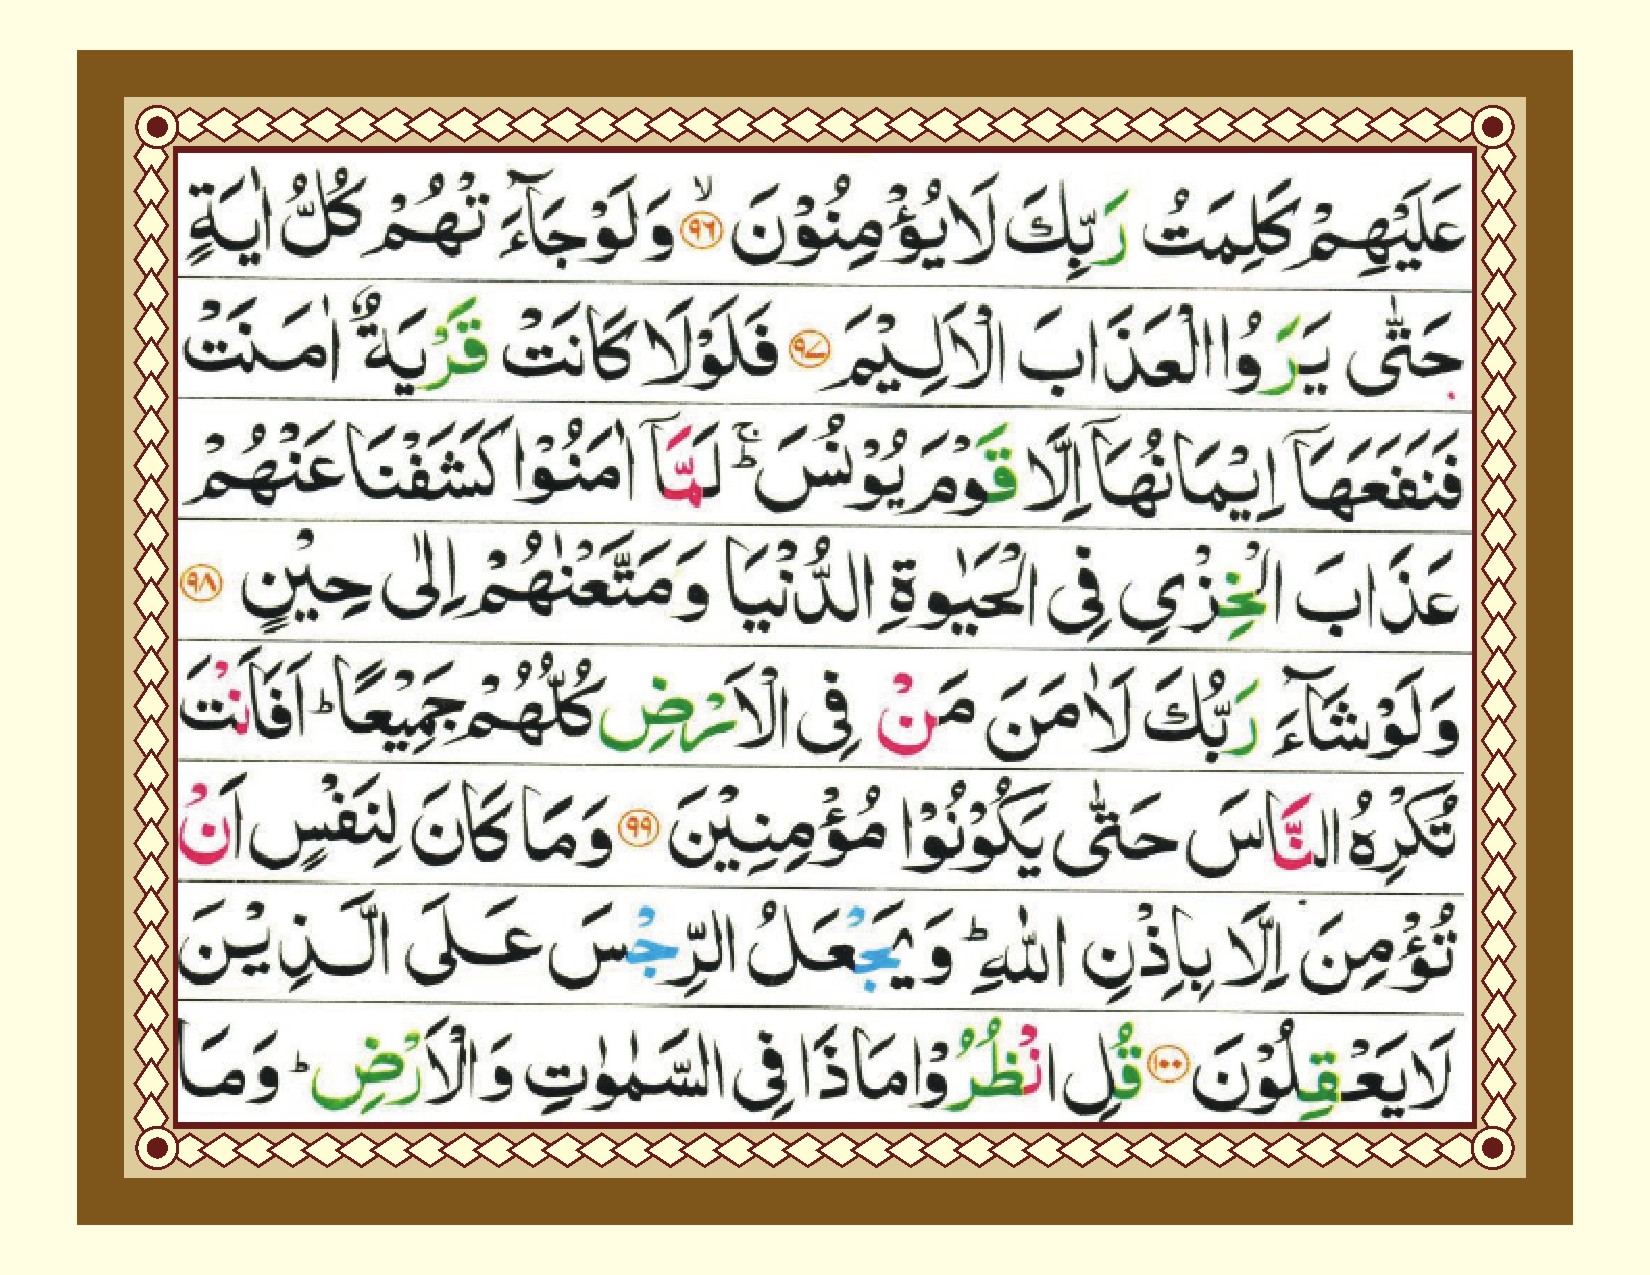 عَلَيْهِمْ كَلِمَتُ رَبِّكَ لَا يُؤْمِنُوْنَ ۙ‏﴿۹۶﴾ وَلَوْ جَآءَ تْهُمْ كُلُّ اٰيَةٍ
حَتّٰى يَرَوُا الْعَذَابَ الْاَلِيْمَ ﴿۹۷﴾ فَلَوْلَا كَانَتْ قَرْيَةٌ اٰمَنَتْ
فَنَفَعَهَاۤ اِيْمَانُهَاۤ اِلَّا قَوْمَ يُوْنُسَ ؕۚ لَمَّاۤ اٰمَنُوْا كَشَفْنَا عَنْهُمْ
عَذَابَ الْخِزْيِ فِى الْحَيٰوةِ الدُّنْيَا وَمَتَّعْنٰهُمْ اِلٰى حِيْنٍ ﴿۹۸﴾
وَلَوْ شَآءَ رَبُّكَ لَاٰمَنَ مَنْ فِى الْاَرْضِ كُلُّهُمْ جَمِيْعًا ؕ اَفَاَنْتَ
تُكْرِهُ النَّاسَ حَتّٰى يَكُوْنُوْا مُؤْمِنِيْنَ ﴿۹۹﴾ وَمَا كَانَ لِنَفْسٍ اَنْ
تُؤْمِنَ اِلَّا بِاِذْنِ اللّٰهِ ؕ وَيَجْعَلُ الرِّجْسَ عَلَى الَّذِيْنَ
لَا يَعْقِلُوْنَ ﴿۱۰۰﴾ قُلِ انْظُرُوْا مَاذَا فِى السَّمٰوٰتِ وَالْاَرْضِ ؕ وَمَا